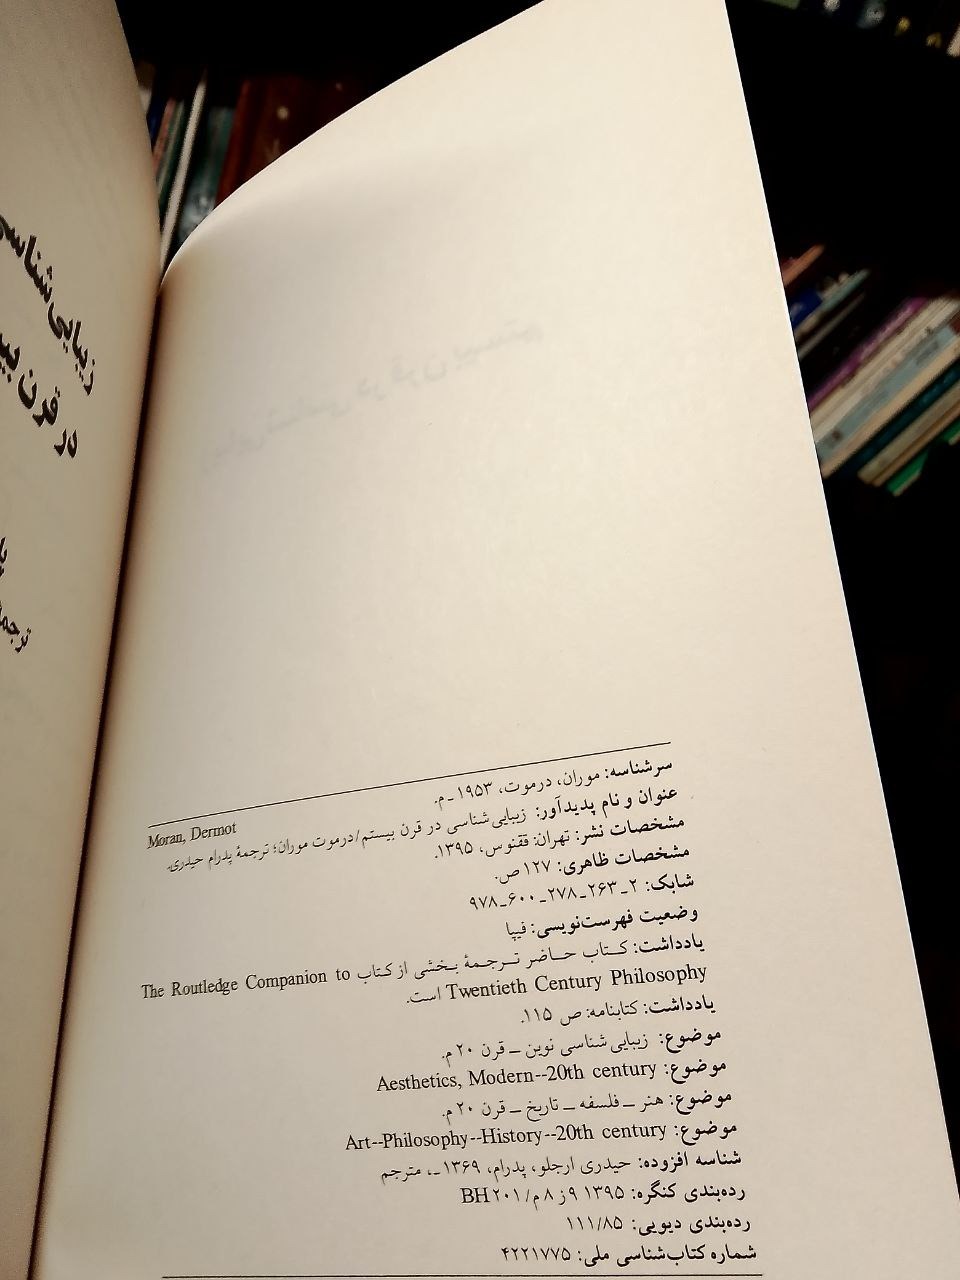 زیبایی‌شناسی
در قرن
سرشناسه: موران، درموت، ۱۹۵۳ ـ م.
Moran, Dermot
عنوان و نام پدیدآور: زیبایی‌شناسی در قرن بیستم/درموت موران؛ ترجمهٔ پدرام حیدری.
مشخصات نشر: تهران: ققنوس، ۱۳۹۵.
مشخصات ظاهری: ۱۲۷ ص.
شابک: ۲ـ۲۶۳ـ۲۷۸ـ۶۰۰ـ۹۷۸
وضعیت فهرست‌نویسی: فیپا
یادداشت: کتاب حاضر ترجمهٔ بخشی از کتاب The Routledge Companion to
Twentieth Century Philosophy است.
یادداشت: کتابنامه: ص ۱۱۵.
موضوع: زیبایی‌شناسی نوین ـ قرن ۲۰ م.
موضوع: Aesthetics, Modern--20th century
موضوع: هنر ـ فلسفه ـ تاریخ ـ قرن ۲۰ م.
موضوع: Art--Philosophy--History--20th century
شناسه افزوده: حیدری ارجلو، پدرام، ۱۳۶۹ ـ، مترجم
رده‌بندی کنگره: ۱۳۹۵ ۹ز۸م/BH۲۰۱
رده‌بندی دیویی: ۱۱۱/۸۵
شماره کتاب‌شناسی ملی: ۴۲۲۱۷۷۵